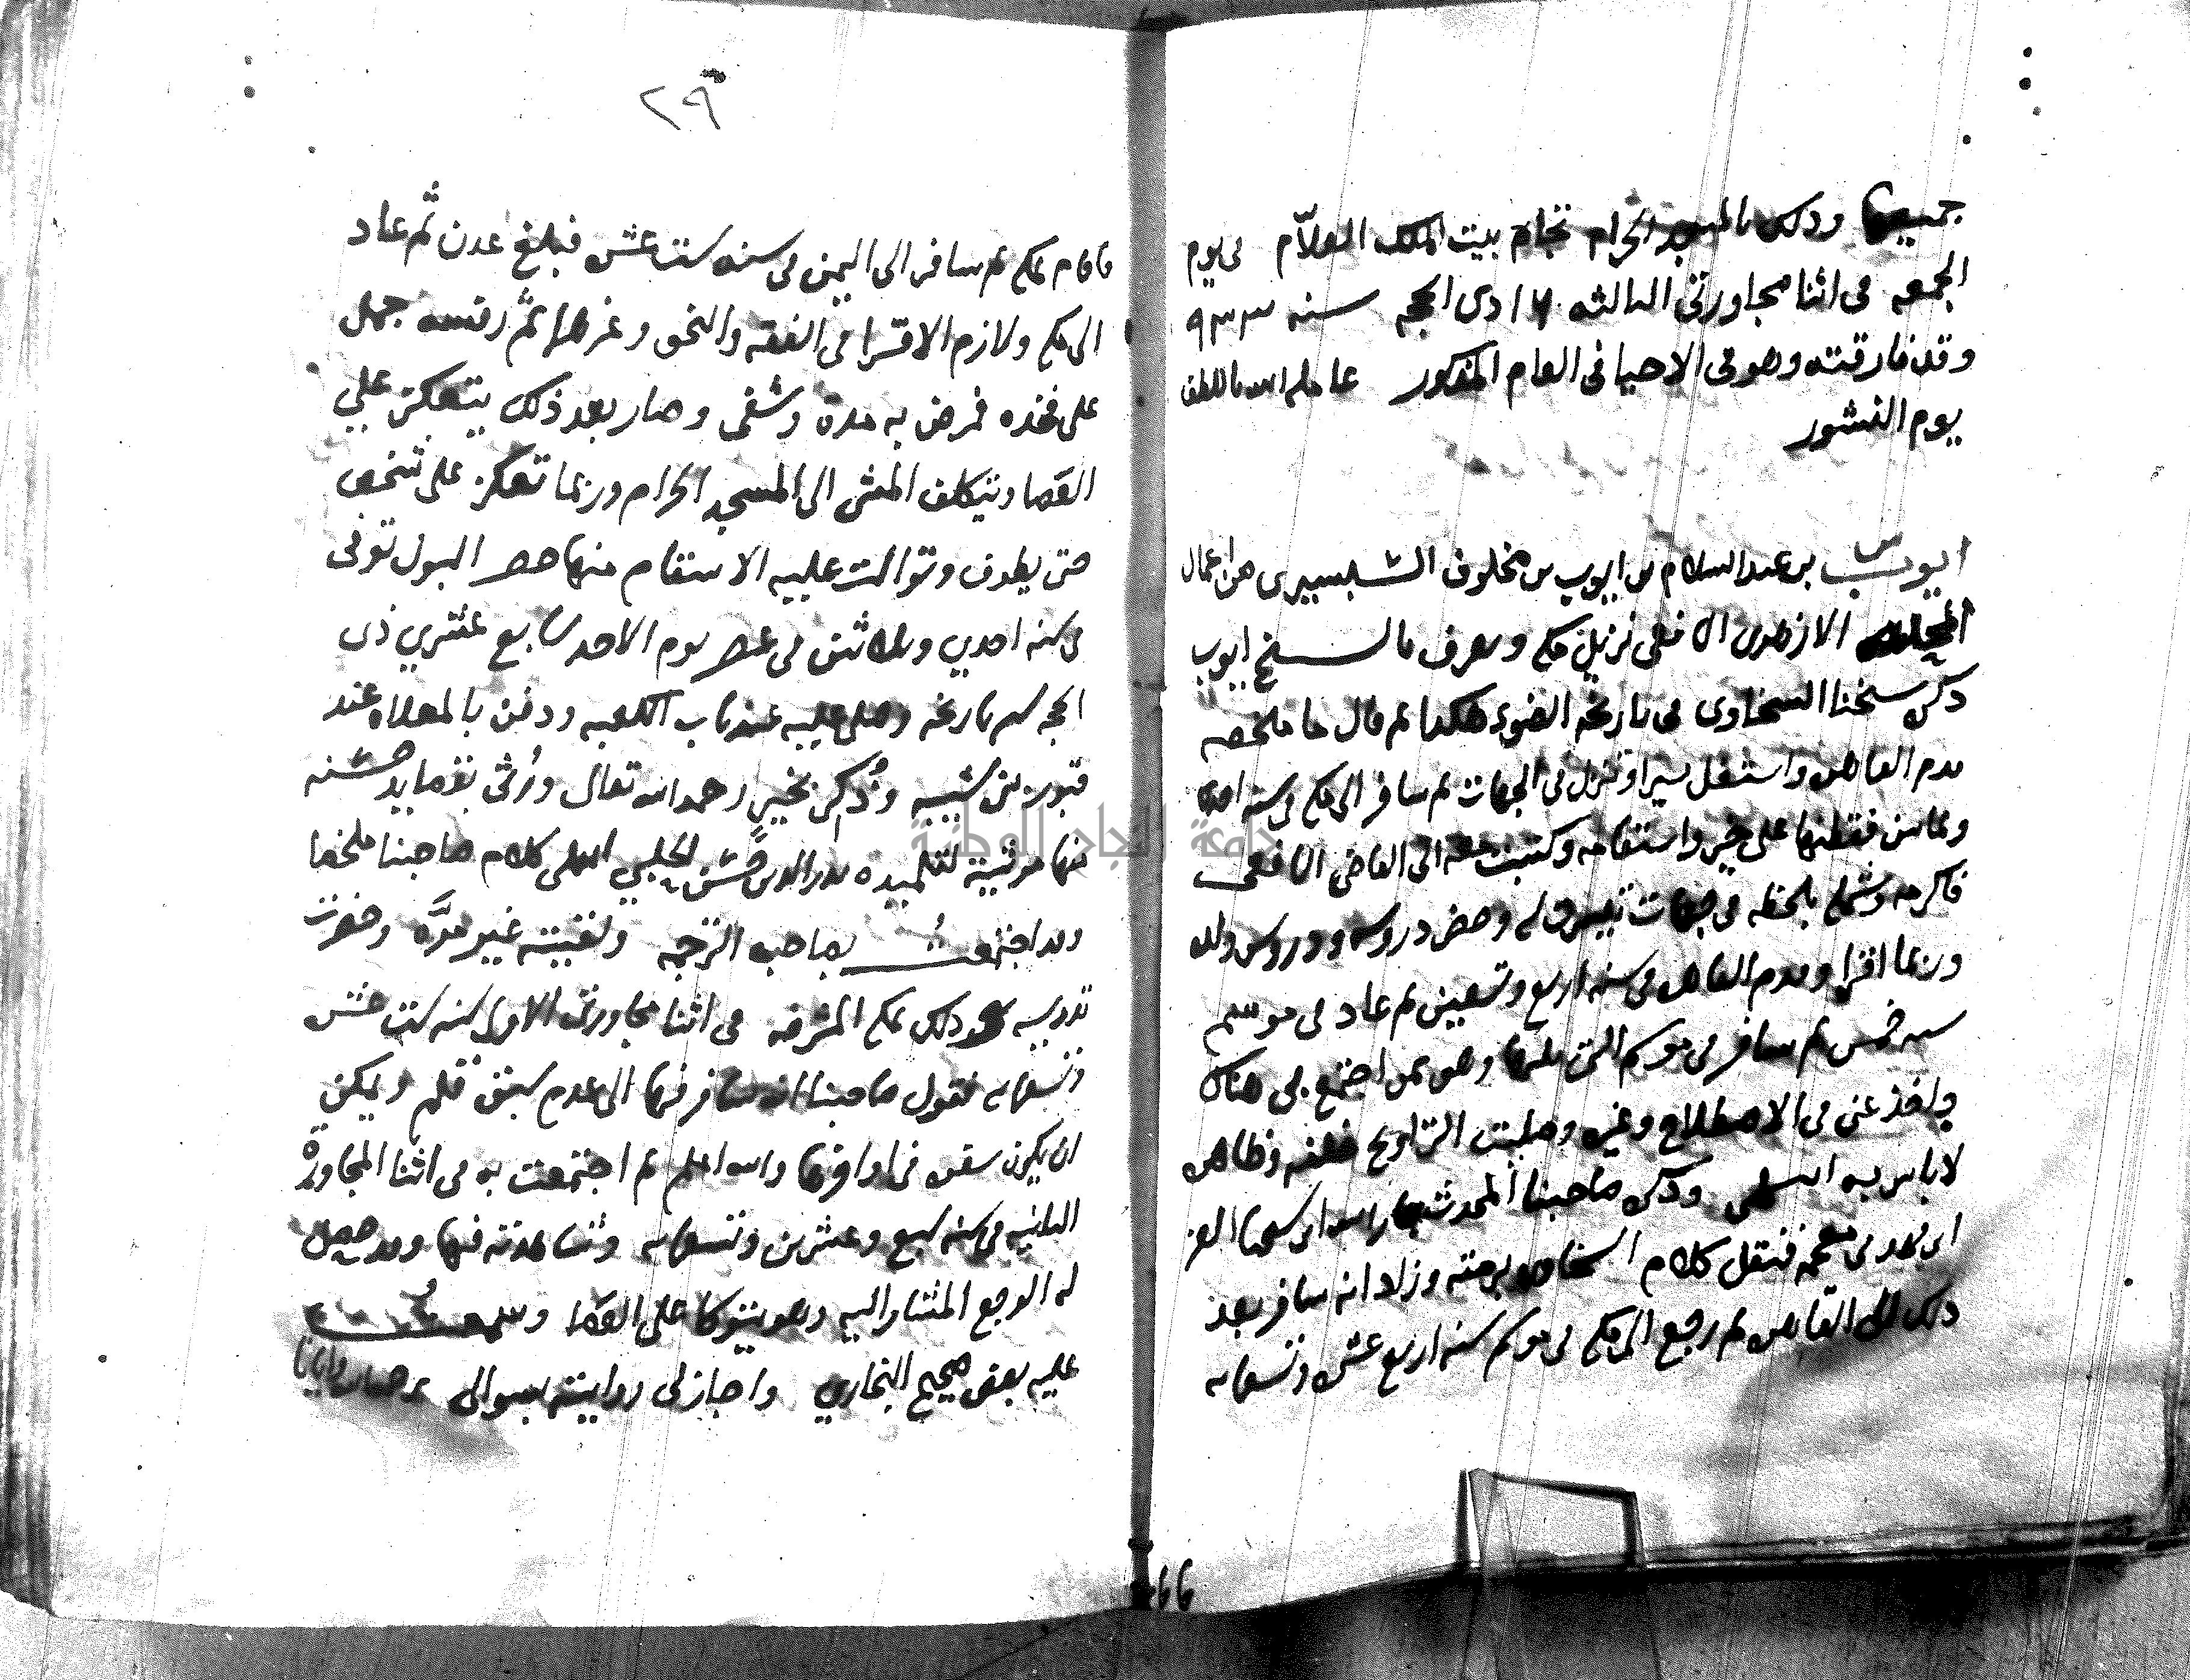 جميعها وذلك بالمسجد الحرام تجاه بيت الملك العلاّم في يوم
الجمعه في اثنا مجاورتي الثالثه ١٧ دي الحجه سنه ٩٣٣
وقد فارقته وهو في الاحيا في العام المذكور عامله الله باللطف
يوم النشور
ايوب بن عبد السلام بن ايوب بن مخلوف الشبسيرى من اعمال
المحله الازهرى الشافعى نزيل مكه ويعرف بالشيخ ايوب
ذكره شيخنا السخاوى في تاريخه الضوء هكذا ثم قال ما ملخصه
قدم القاهره واشتغل يسيرا وتنزل في الجهات ثم سافر الى مكه في سنه احدى
وثمانين فقطنها على خير واستقامه وكتبت معه الى القاضى الشافعى
فاكرمه وشمله بلحظه في جهات تيسرت له وحضر دروسه ودروس ولده
وربما اقرا وقدم القاهره في سنه اربع وتسعين ثم عاد في موسم
سنه خمس ثم سافر في موسم التى تليها وهو ممن اجتمع بي هناك
واخذ عنى في الاصطلاح وغيره وصليت التراويح خلفه وظاهره
لا باس به انتهى وذكره صاحبنا المحدث جار الله ابن شيخنا العز
ابن فهد في معجمه فنقل كلام السخاوى برمته وزاد انه سافر بعد
ذلك الى القاهره ثم رجع الى مكه في موسم سنه اربع عشره وتسعمايه
٢٩
فاقام بمكه ثم سافر الى اليمن في سنه ست عشره فبلغ عدن ثم عاد
الى مكه ولازم الاقرا في الفقه والنحو وغيرهما ثم رفسه جمل
على فخده فمرض به مدة وشفى وصار بعد ذلك يتعكز علي
العصا ويتكلف المشى الى المسجد الحرام وربما تعكز على شخص
حتى يطوف وتوالت عليه الاسقام منها حصر البول توفى
في سنه احدي وثلاثين في عصر يوم الاحد سابع عشري ذى
الحجه وصلى عليه عند باب الكعبه ودفن بالمعلاه عند
قبور بنى شيبه وذُكر بخير رحمه الله تعالى ورُثى بقصايد حسنه
منها مرثية لتلميذه بدر الدين الحلبي انتهى كلام صاحبنا ملخصا
وقد اجتمعتُ بصاحب الترجمه ولقيته غير مرَّه وحضرت
تدريسه وذلك بمكه المشرفه في اثنا مجاورتى الاولى سنه ست عشره
وتسعمايه فقول صاحبنا انه سافر فيها الى عدم سبق قلم ويمكن
ان يكون سفره في اواخرها والله اعلم ثم اجتمعت به في اثنا المجاورة
الثانيه في سنه سبع وعشرين وتسعمايه وشاهدته فيها وقد حصل
له الوجع المشار اليه وهو يتوكا على العصا وسمعتُ
عليه بعض صحيح البخاري واجاز لى روايته بسوالى